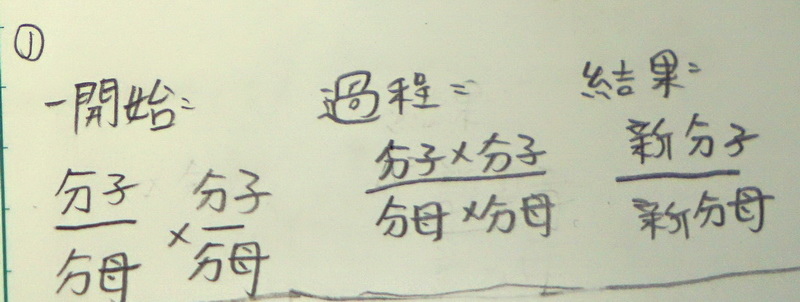 ①
一開始:
分子
分母
×
分子
分母
過程:
分子×分子
分母×分母
結果:
新分子
新分母